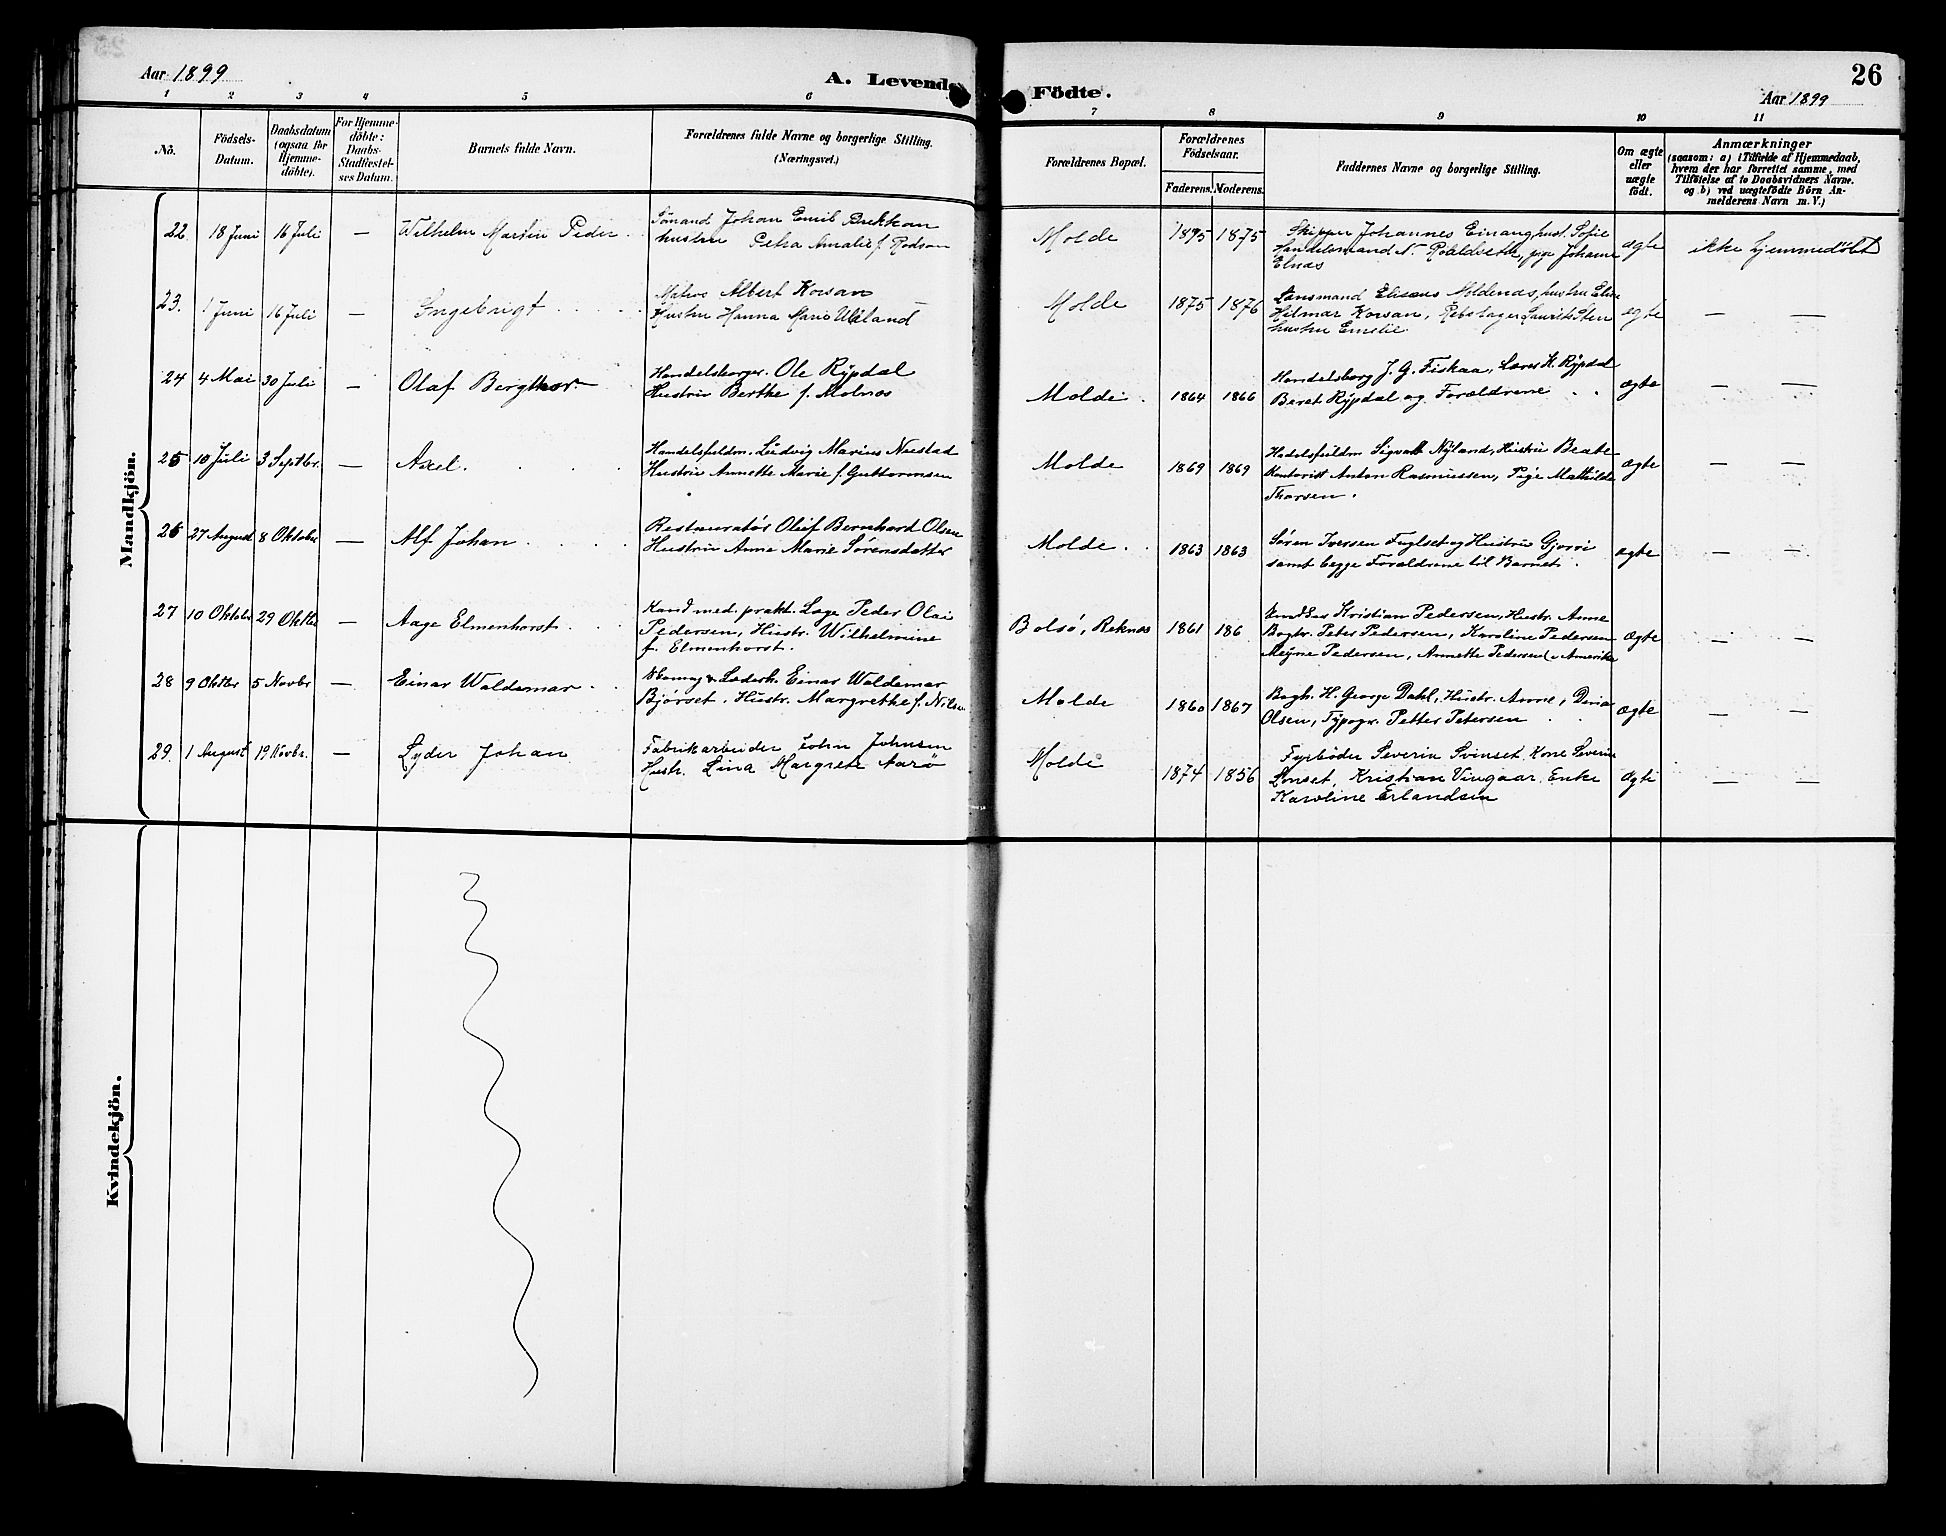 Aar 1899
A. Levende
Födte.
26
Aar 1899
1 2 3 4 5 6 7 8 9 10 11
No.
Födsels-Datum.
Daabsdatum (ogsaa for Hjemme-döbte).
For Hjemme-döbte: Daabs-Stadfæstel-ses Datum.
Barnets fulde Navn.
Forældrenes fulde Navne og borgerlige Stilling.
(Næringsvei.)
Forældrenes Bopæl.
Forældrenes Födselsaar.
Faderens. Moderens.
Faddernes Navne og borgerlige Stilling.
Om ægte eller uægte födt.
Anmærkninger
(saasom: a) i Tilfælde af Hjemmedaab,
hvem der har forrettet samme, med
Tilföielse af to Daabsvidners Navne.
og b) ved uægtefödte Börn An-
melderens Navn m. V.)
Mandkjön.
22 18 Juni 16 Juli — Wilhelm Martin Peder
Sømand Johan Emil Brekkan
hustru Petra Amalie f.
Molde 1895 1875
Skipper Johannes Einang hust. Sofie
Handelsmand N. Roaldseth, pige Johanne
Elnæs
ægte
ikke hjemmedøbt
23. 1 Juni 16 Juli — Ingebrigt
Matros Albert Korsan
Hustru Hanna Marie
Molde 1875 1876
Lensmand Moldenæs, hustru
Hilmar Korsan, Rebslager
hustru Emelie
ægte — —
24 4 Mai 30 Juli — Olaf Bergthor
Handelsborger. Ole Rÿpdal
Hustru Berthe f. Molnes
Molde. 1864 1866
Handelsborg J. G. Fiskaa, Lærer K. Rÿpdal
Beret Rÿpdal og Forældrene
ægte — —
25 10 Juli 3 Septbr. — Axel.
Handelsfuldm. Ludvig Marius Neestad
Hustru Annette Marie f. Guttormsen
Molde 1869 1869
Sigvatt Nÿland, Hustru Beate
Kontorist Anton Rasmussen, Pige Mathilde
Thorsen.
ægte — —
26 27 August 8 Oktober — Alf Johan
Restauratør Oluf Bernhard Olsen
Hustru Anne Marie Sørensdatter
Molde. 1863 1863
Søren Iversen Fuglset og Hustru Gjørri
samt begge Forældrene til Barnet.
ægte — —
27 10 Oktobr 29 Oktbr — Aage Elmenhorst.
Kand med. prakt. Læge Peder Olai
Pedersen, Hustr. Wilhelmine
f. Elmenhorst.
Bolsø, Reknæs 1861 186
Kristian Pedersen, Hustr. Anne
Bogbr. Peter Pedersen, Karoline Pedersen
Meÿne Pedersen, Annette Pedersen (i Amerika
Ægte — —
28 9 Oktbr 5 Novbr — Einar Waldemar
Læderh. Einar Waldemar
Bjørset. Hustr. Margrethe f. Nilsen
Molde 1860 1867
Bogh. H. George Dahl, Hustr. Anne, Dina
Olsen, Typogr. Petter Petersen
ægte — —
29. 1 August 19 Novbr. — Lyder Johan
Fabrikarbeider John Johnsen
Hustr. Lina Margrete Aarø
Molde 1874 1856
Fyrbøder Severin Svinset, Kone Severine
Lønset, Kristian Vingaar, Enke
Karoline Erlandsen
ægte — —
Kvindekjön.